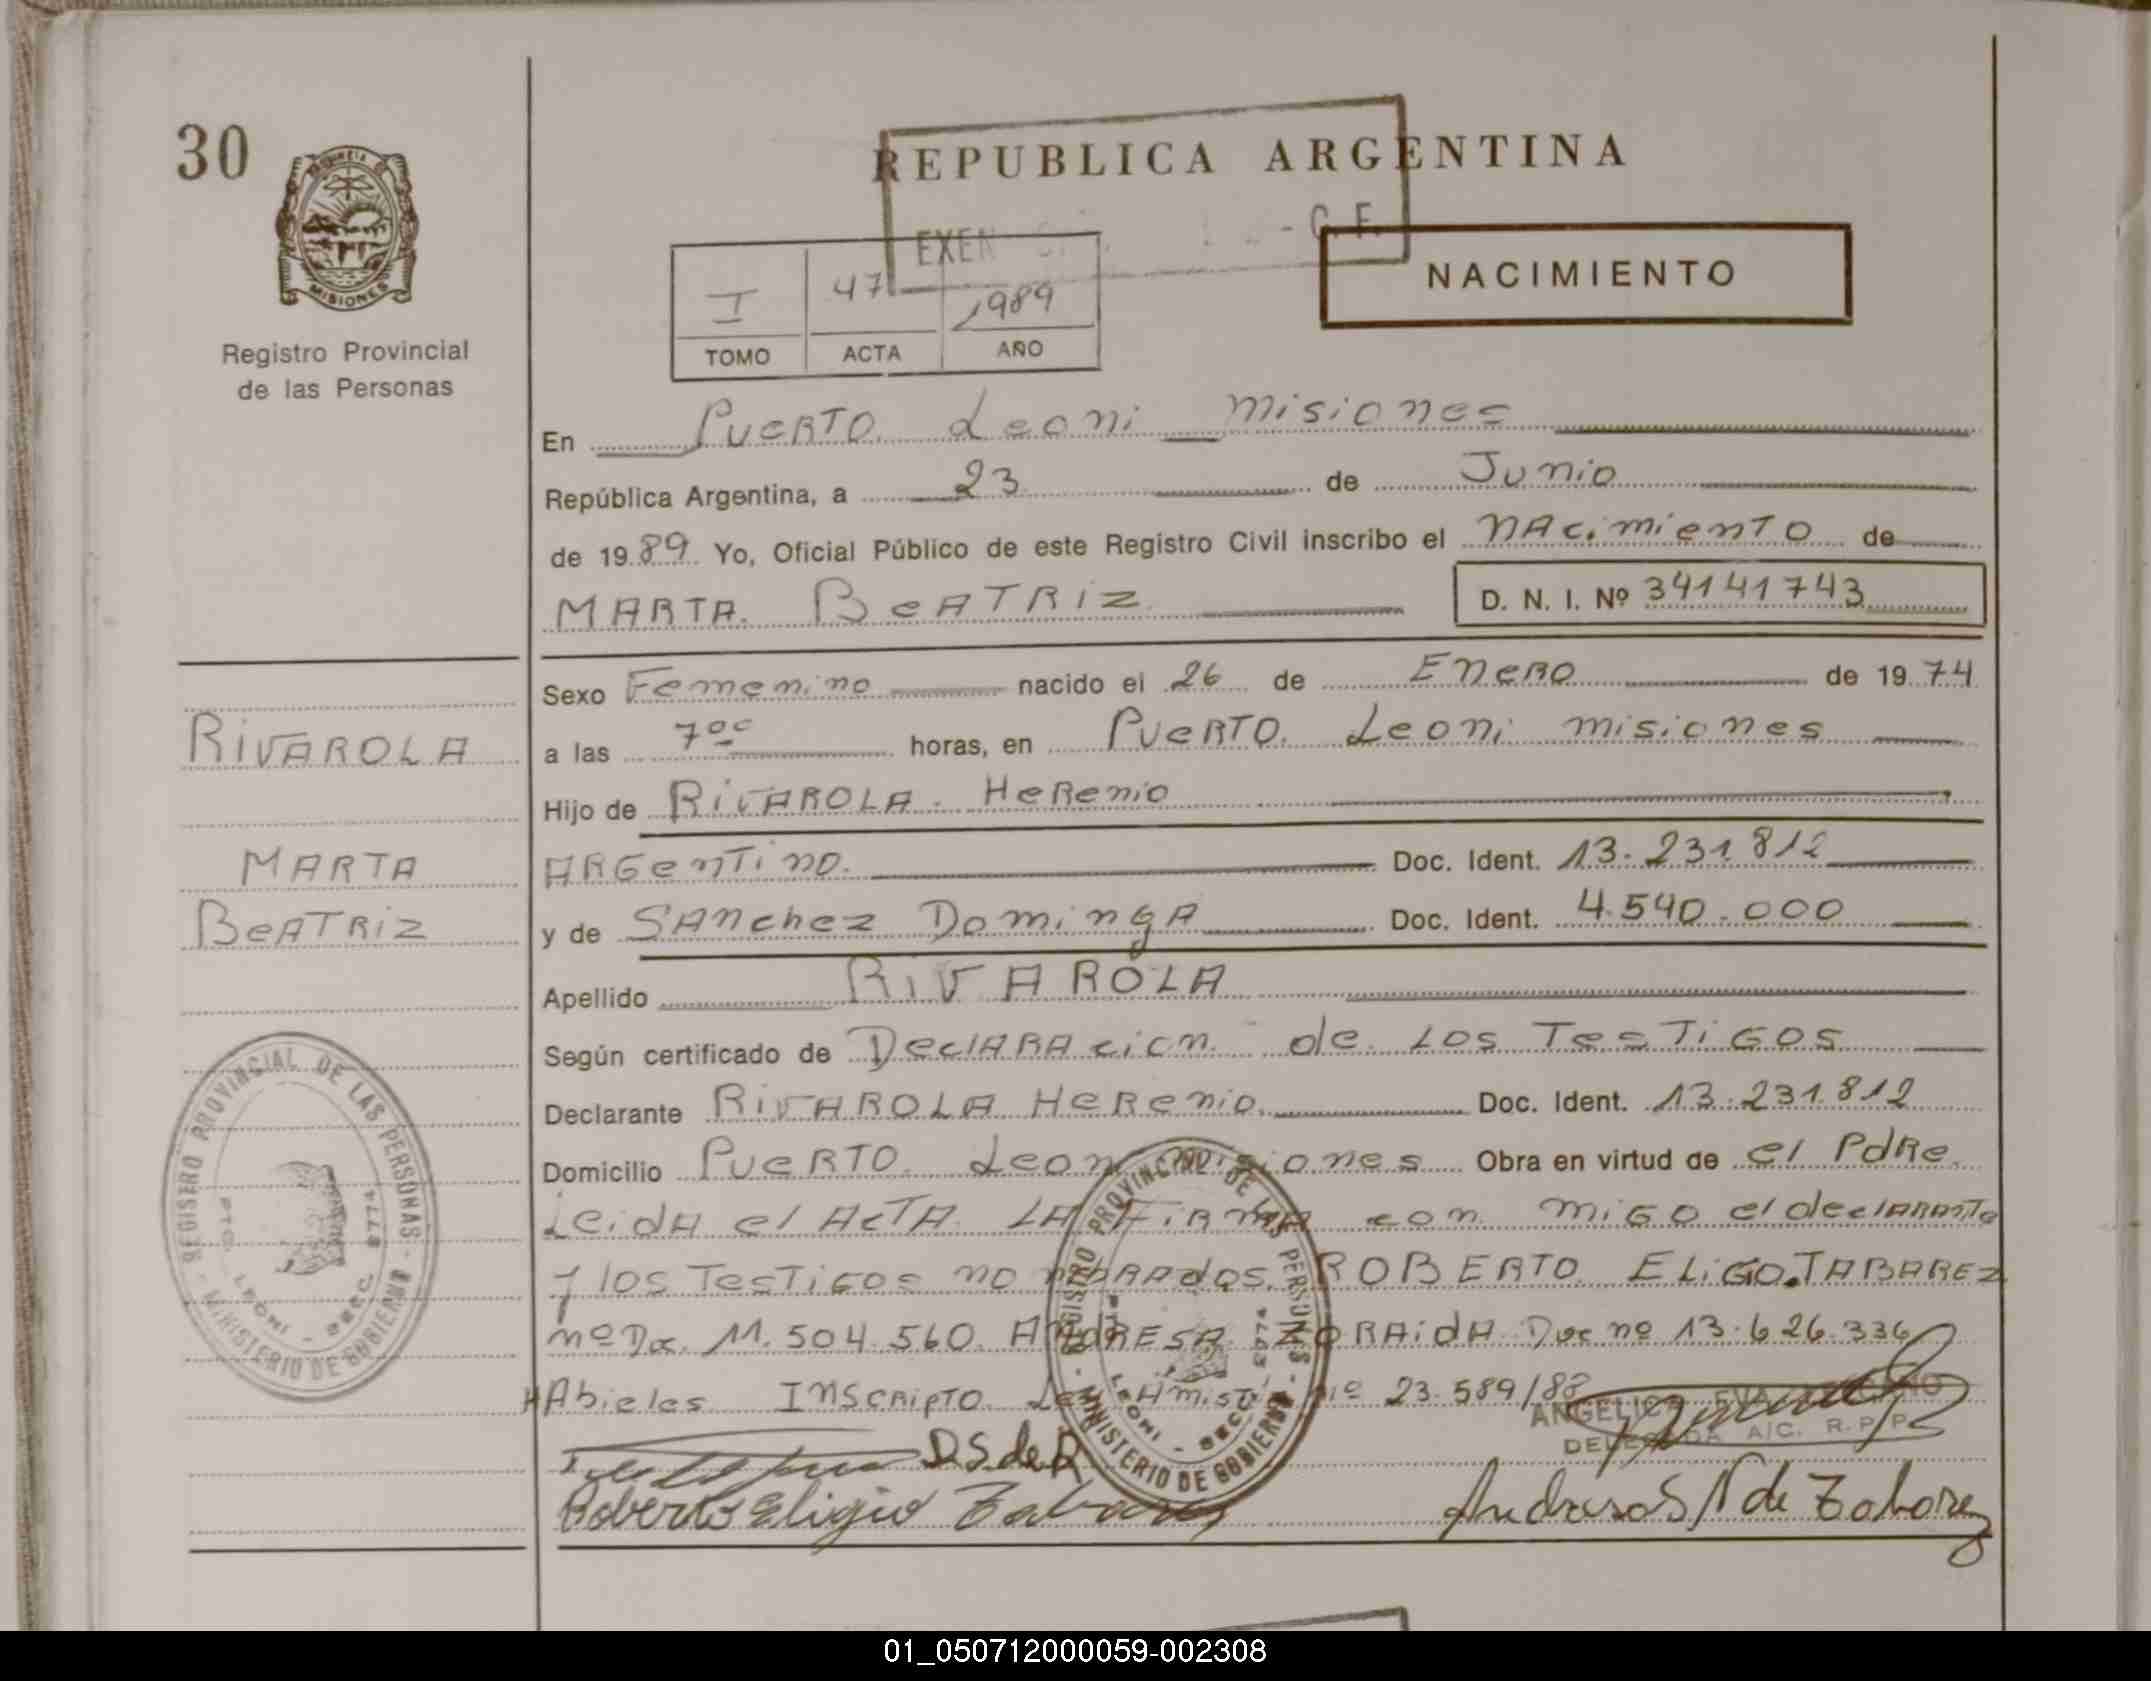 30
PROVINCIA DE
MISIONES
Registro Provincial
de las Personas
REPUBLICA ARGENTINA
EXEN - C. F.
NACIMIENTO
I 47 1989
TOMO ACTA AÑO
En PUERTO Leoni misiones
República Argentina, a 23 de Junio
de 1989 Yo, Oficial Público de este Registro Civil inscribo el NAcimienTO de
MARTA. BeATRiz D. N. I. Nº 34141743
RIVAROLA
MARTA
BeATRiz
Sexo Femenino nacido el 26 de ENERO de 1974
a las 7ºº horas, en PUeRTO Leoni misiones
Hijo de RiVAROLA. HeRenio
ARGenTiNO. Doc. Ident. 13.231812
y de SANchez DomingA Doc. Ident. 4.540.000
Apellido RiVAROLA
Según certificado de DeclARAcion de LOS TesTiGOS
Declarante RiVAROLA HeRenio. Doc. Ident. 13.231.812
Domicilio PUeRTO Leoni misiones Obra en virtud de el PdRe
LeidA el ActA LA FiRmA con miGO el declARANTe
y los TesTiGos nombRAdos. ROBERTO ELiGO.TABAREZ
nº Doc. 11.504.560. ANDRESA ZORAidA Doc nº 13.626.336
HAbieles INScRipTO Ley AmisT nº 23.589/88
ANGELICA EVA
DELEGADA A/C. R. P. P.
D.S.deR
Roberto Eligio Tabarez
de Tabarez
REGISTRO PROVINCIAL DE LAS PERSONAS
PTO. LEONI - SECC. 8774
MINISTERIO DE GOBIERNO
REGISTRO PROVINCIAL DE LAS PERSONAS
LEONI - SECC. 8774
MINISTERIO DE GOBIERNO
01_050712000059-002308